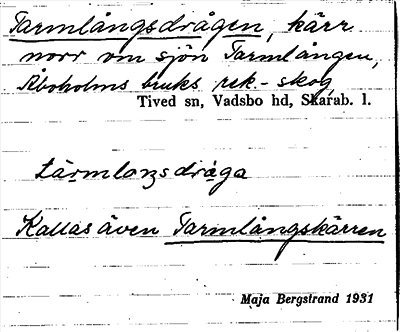 Tarmlångsdrågen, kärr
norr om sjön Tarmlången,
Åboholms bruks rek.-skog,
Tived sn, Vadsbo hd, Skarab. l.
tärmlaŋsdråga
Kallas även Tarmlångskärren
Maja Bergstrand 1931